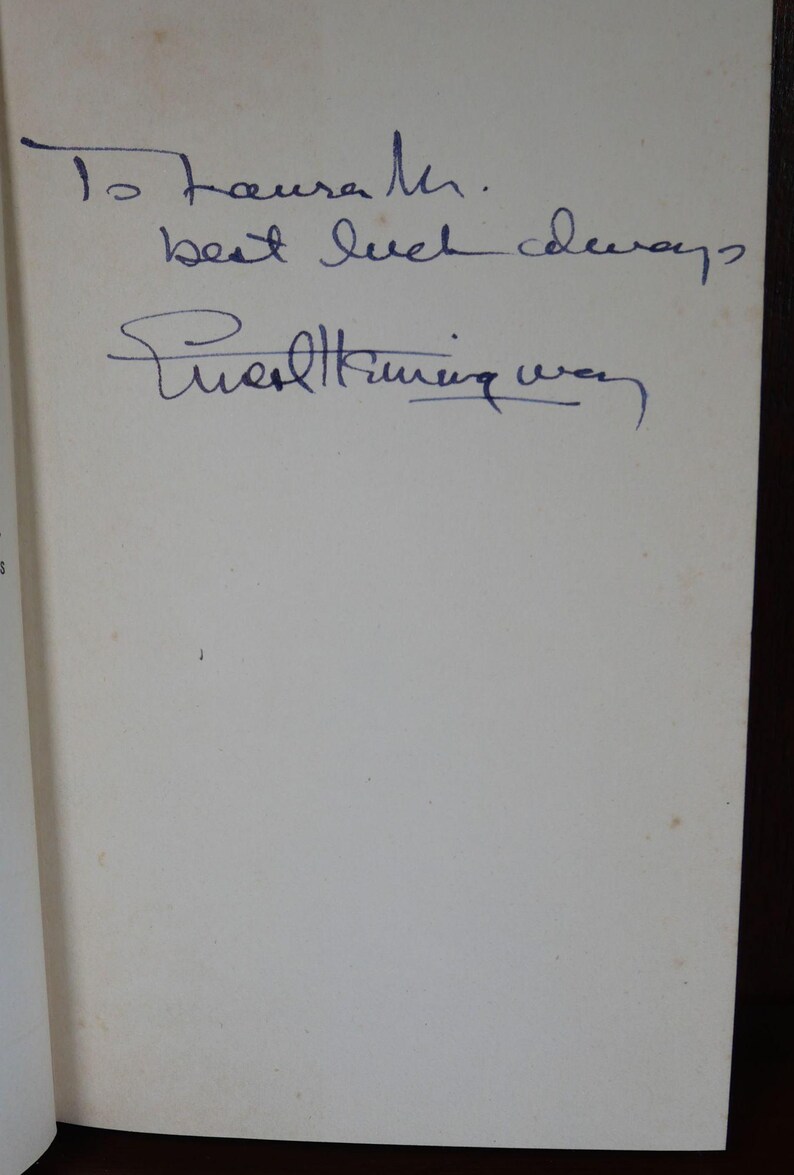 To Laura M.
best luck always
Ernest Hemingway
s